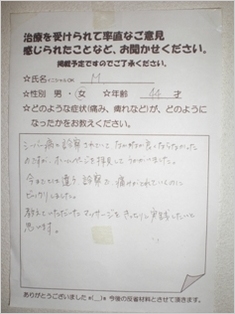 治療を受けられて率直なご意見
感じられたことなど、お聞かせください。
掲載予定ですのでご了承ください。
☆氏名 イニシャルOK M
☆性別 男・女 ☆年齢 44才
☆どのような症状(痛み、痺れなど)が、どのように
なったかをお教えください。
と診断されていて なかなか良くならなかった
のですが、ホームページを拝見してうかがいました。
今までとは違う診断で、痛みがとれていくのに
びっくりしました。
教えていただいたマッサージを
思います。
ありがとうございました *(__)* 今後の反省材料とさせて頂きます。